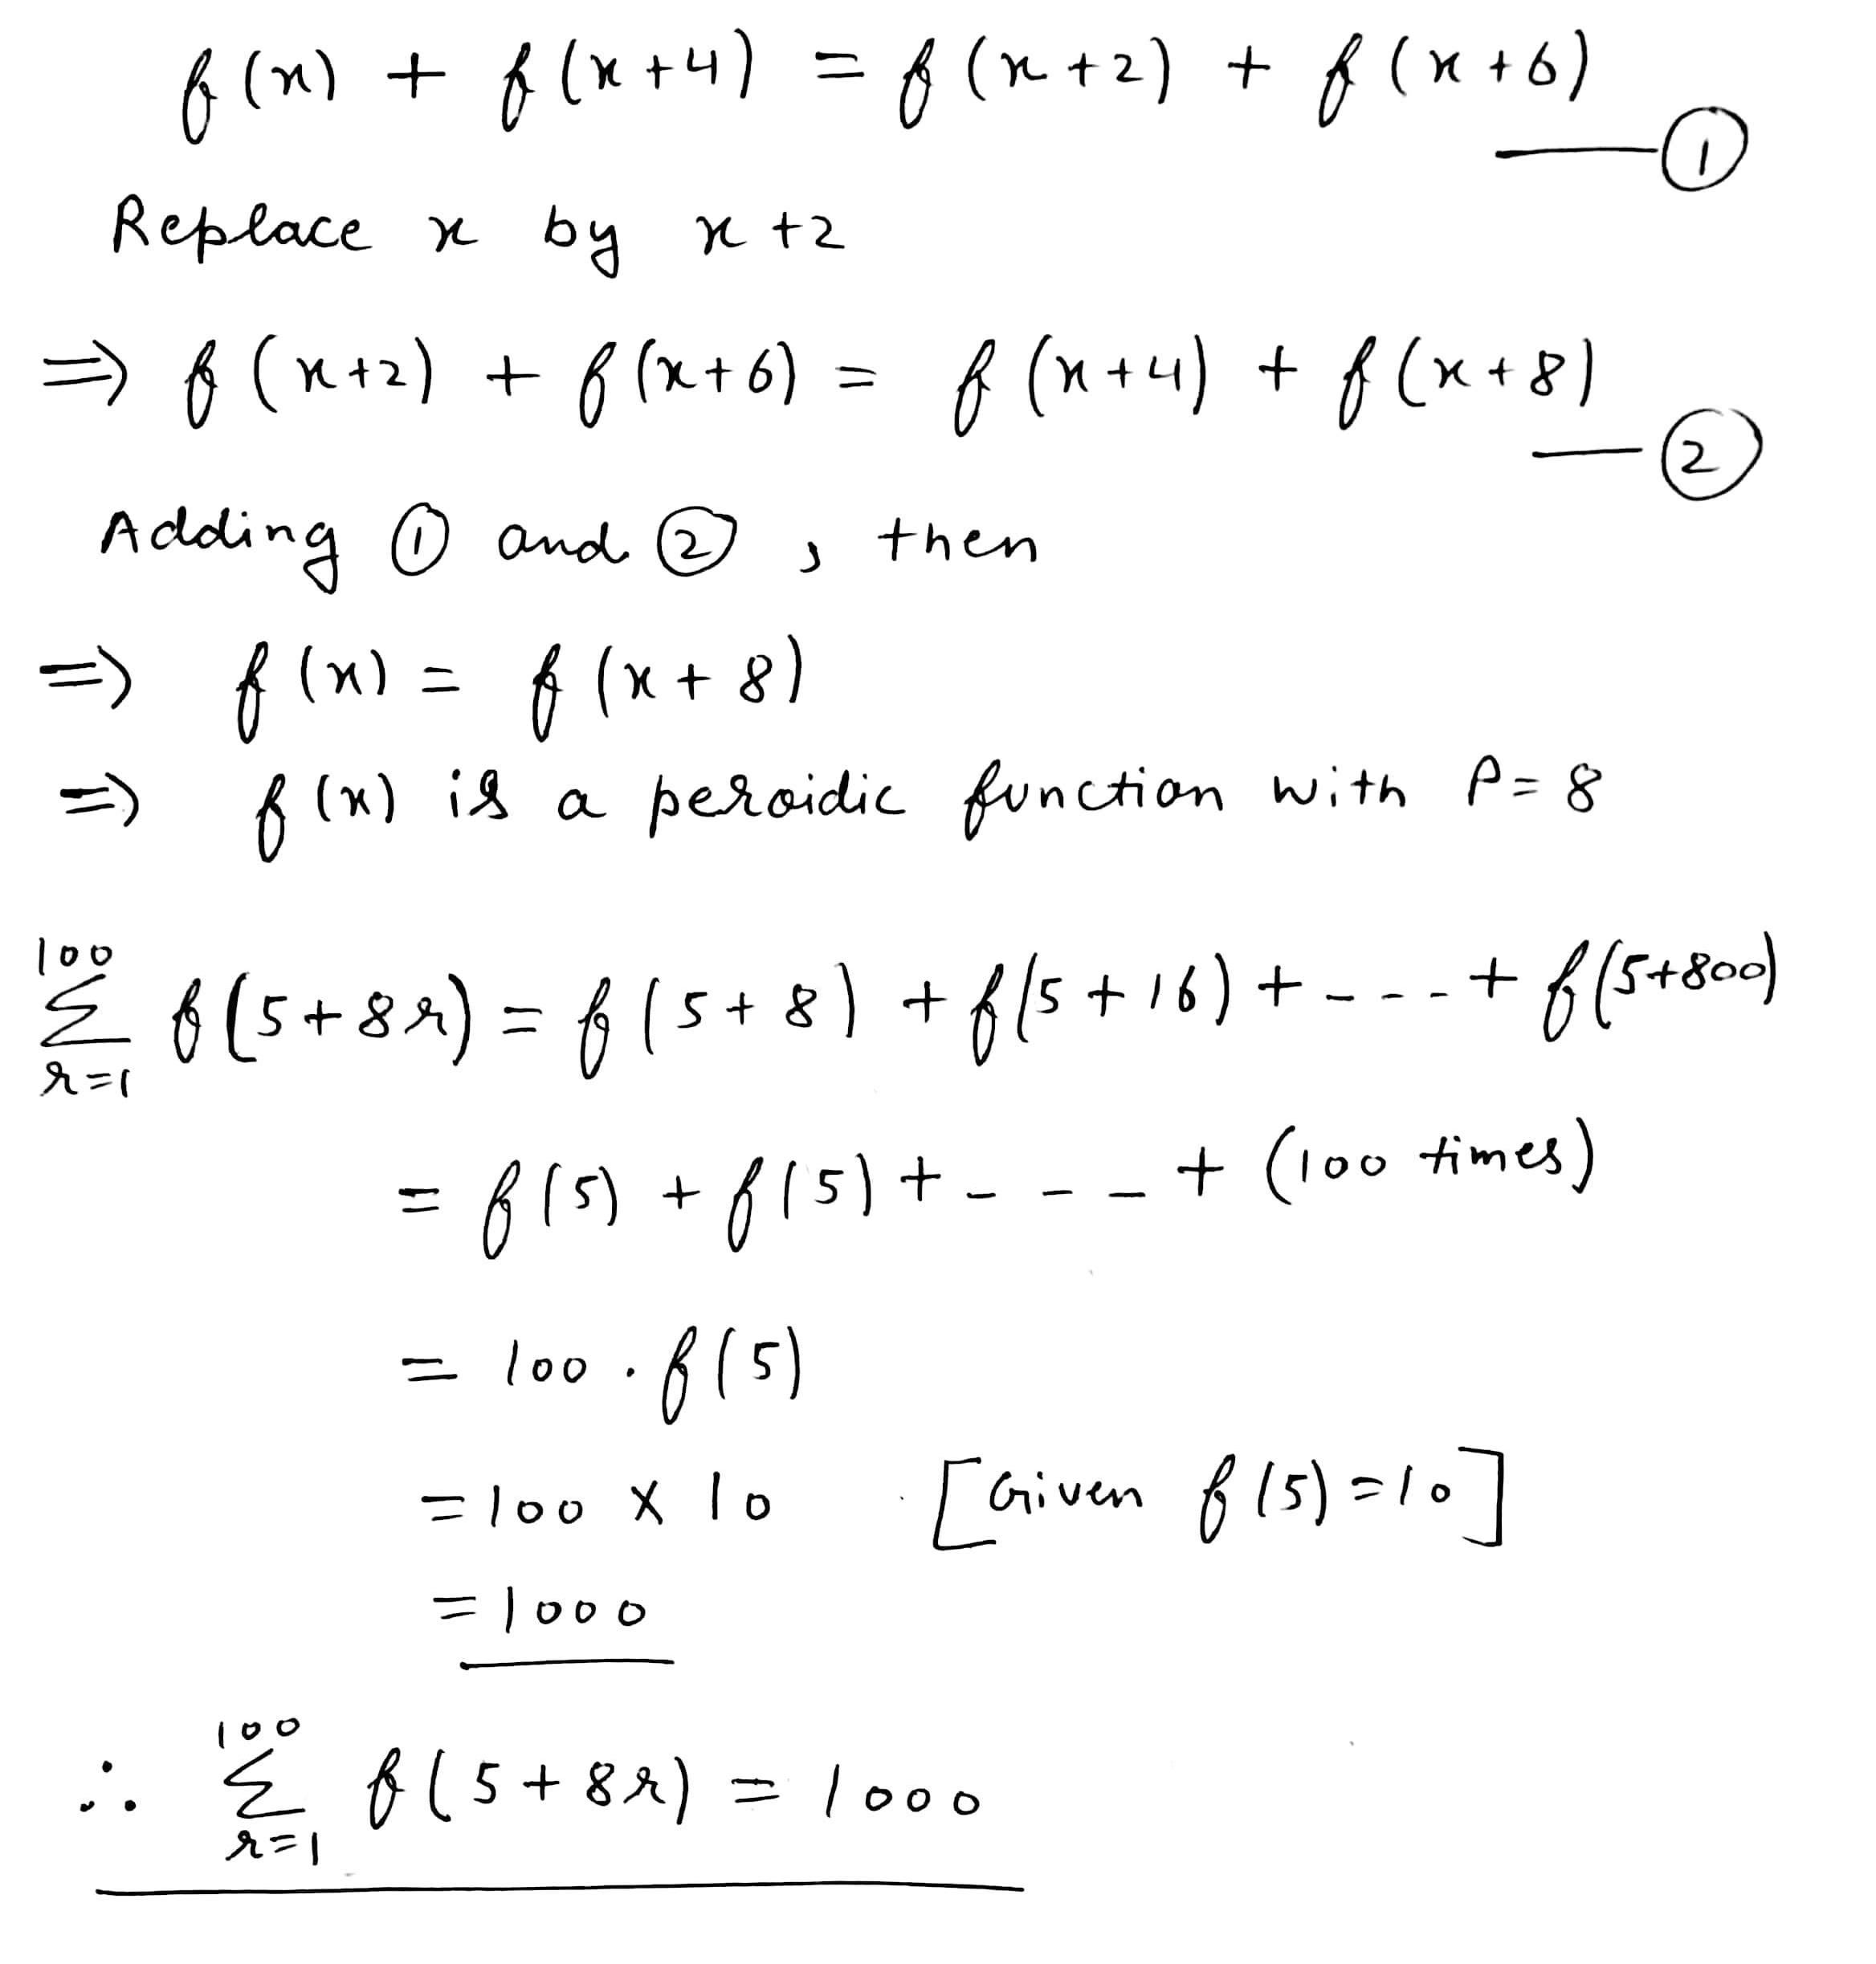 f(x) + f(x+4) = f(x+2) + f(x+6)
—①
Replace x by x+2
⇒ f(x+2) + f(x+6) = f(x+4) + f(x+8)
—②
Adding ① and ②, then
⇒ f(x) = f(x+8)
⇒ f(x) is a peroidic function with P=8
100
∑ f(5+8r) = f(5+8) + f(5+16) + ---- + f(5+800)
r=1
= f(5) + f(5) + --- + (100 times)
= 100 . f(5)
= 100 x 10 [Given f(5)=10]
= 1000
100
∴ ∑ f(5+8r) = 1000
r=1